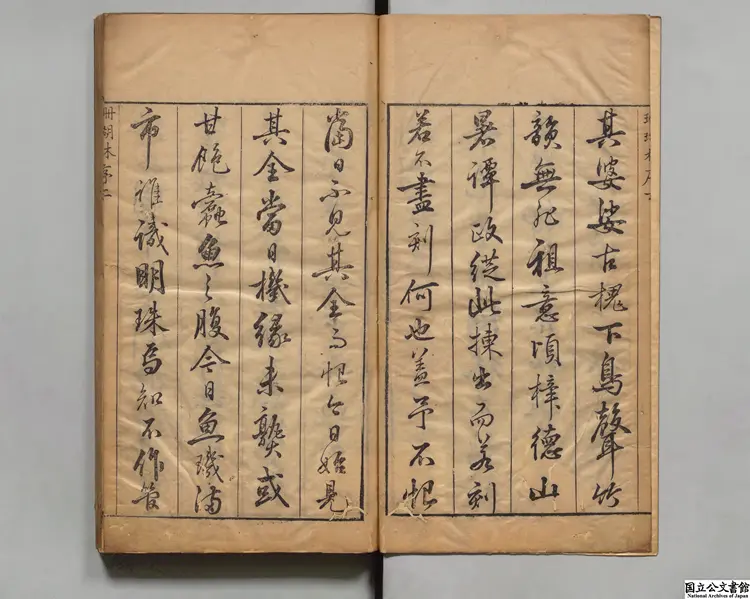 其婆娑古槐下鳥聲竹
韻無非祖意頃梓德山
暑譚政從此揀出而若刻
若不盡刻何也蓋予不恨
當日不見其全而恨今日始見
其全當日機緣未熟或
甘飽蠹魚之腹今日魚璣滿
市誰識明珠焉知不作
珊瑚林序二
国立公文書館
National Archives of Japan